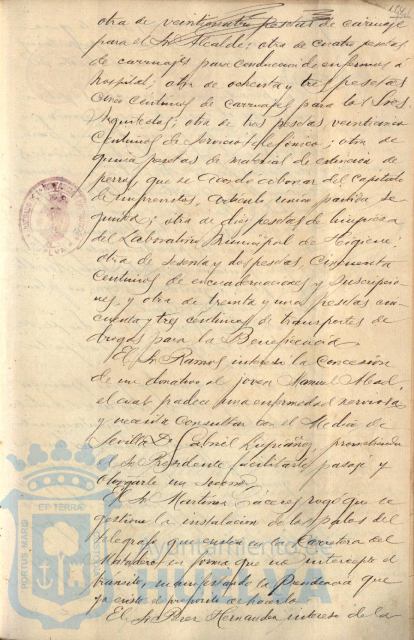 otra de veinticuatro pesetas de carruaje
para el Sr. Alcalde; otra de cuatro pesetas
de carruajes para conduccion de enfermos á
hospital; otra de ochenta y tres pesetas
cinco centimos de carruajes para los Sres.
Arquitectos; otra de tres pesetas veinticinco
centimos de servicio telefónico; otra de
quince pesetas de material de extincion de
perros, que se acordó abonar del capitulo
de imprevistos, articulo unico partida se
gunda; otra de diez pesetas de limpieza
del Laboratorio Municipal de Higiene;
otra de sesenta y dos pesetas cincuenta
centimos de encuadernaciones y suscripcio
nes, y otra de treinta y una pesetas cin
cuenta y tres centimos de transportes de
drogas para la Beneficencia.
El Sr. Ramos interesó la concesión
de un donativo al joven Manuel Abad,
el cual padece una enfermedad nerviosa
y necesita consultar con el Medico de
Sevilla D. Gabriel Lupiañez, prometiendo
el Sr. Presidente facilitarle pasaje y
otorgarle un socorro.
El Sr. Martinez Cáceres rogó que se
gestione la instalación de los palos del
telegrafo que existen en la Carretera del
Matadero en forma que no intercepte el
transito, manifestando la Presidencia que
ya existe el proposito de hacerlo.
El Sr. Perez Hernandez intereso de la
PORTUS MARIS
ET TERRÆ
CUSTODIA
Ayuntamiento de
HUELVA